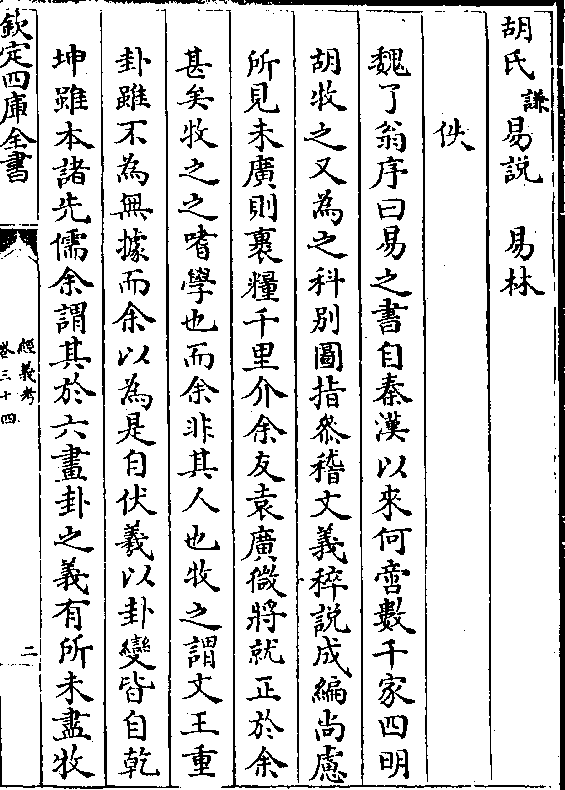 胡氏謙易説　易林
佚
魏了翁序曰易之書自秦漢以來何啻數千家四明
胡牧之又為之科别圖指叅稽文義稡説成編尚慮
所見未廣則裹糧千里介余友袁廣微將就正於余
甚矣牧之之嗜學也而余非其人也牧之謂文王重
卦雖不為無據而余以為是自伏羲以卦變皆自乾
坤雖本諸先儒余謂其於六畫卦之義有所未盡牧
欽定四庫全書
經義考
卷三十四
二